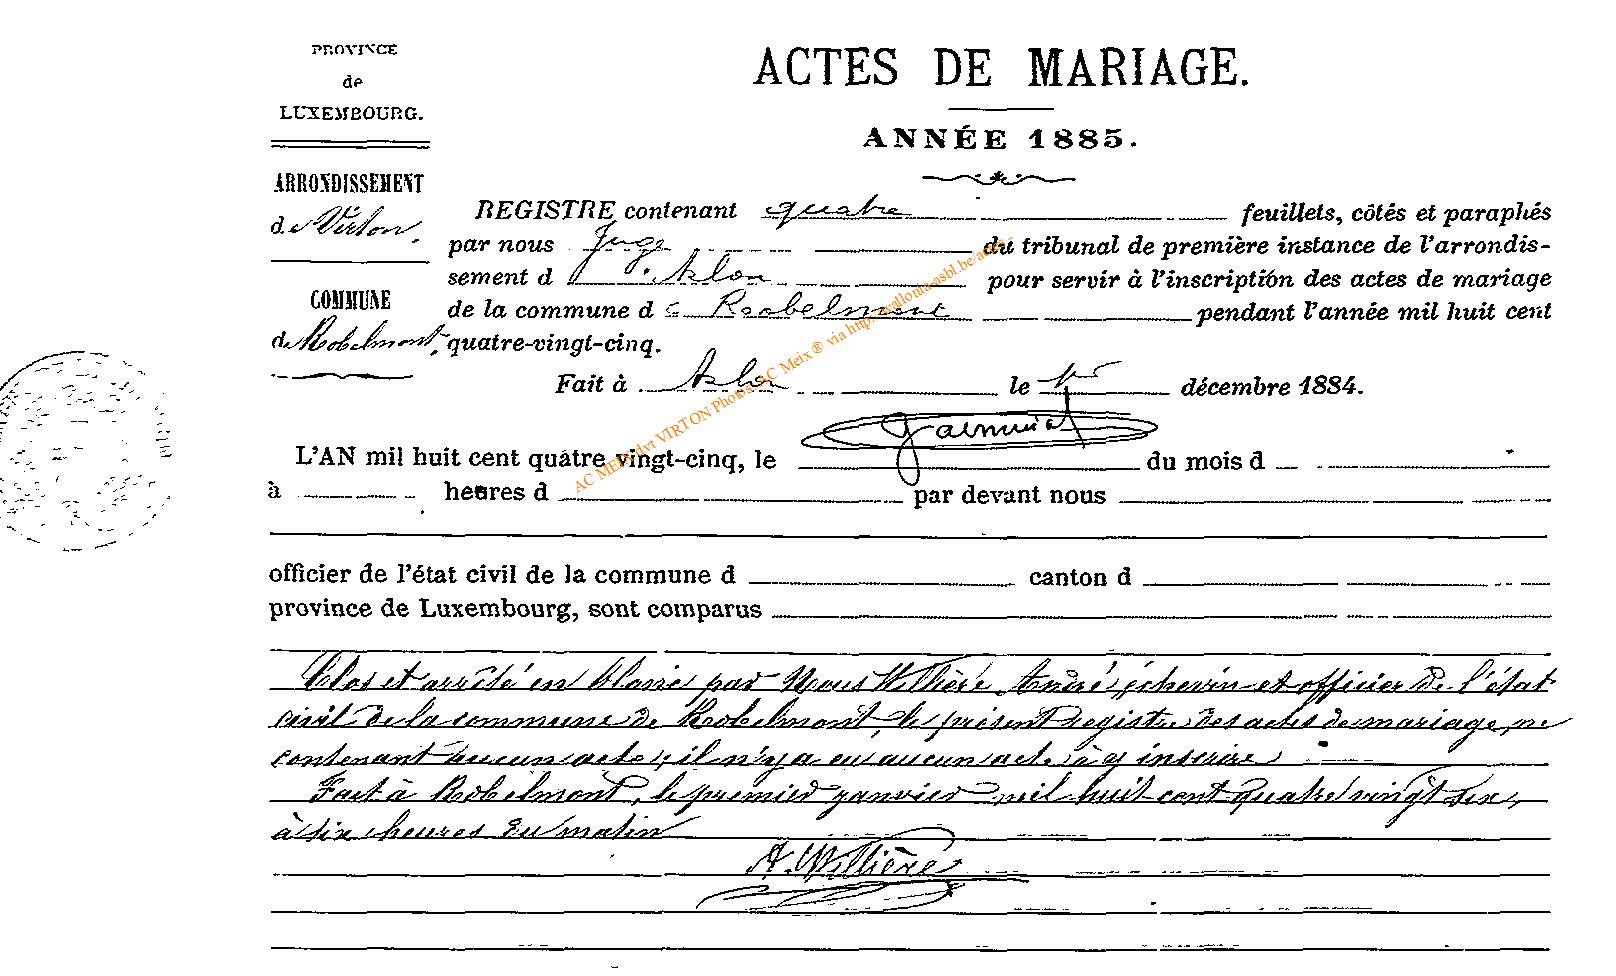 PROVINCE
de
LUXEMBOURG.
ARRONDISSEMENT
de Virton.
COMMUNE
de Robelmont.
ACTES DE MARIAGE.
ANNÉE 1885.
REGISTRE contenant quatre feuillets, côtés et paraphés
par nous Juge du tribunal de première instance de l'arrondis-
sement d'Arlon pour servir à l'inscription des actes de mariage
de la commune de Robelmont pendant l'année mil huit cent
quatre-vingt-cinq.
Fait à Arlon le 1er décembre 1884.
L'AN mil huit cent quatre vingt-cinq, le du mois d
à heures d par devant nous
officier de l'état civil de la commune d canton d
province de Luxembourg, sont comparus
Clos et arrêté en blanc par Nous Willière André, échevin et officier de l'état
civil de la commune de Robelmont, le présent registre des actes de mariage, ne
contenant aucun acte, il n'y a eu aucun acte à y inscrire.
Fait à Robelmont, le premier janvier mil huit cent quatre vingt six,
à six heures du matin
A. Willière
AC MEIX dvt VIRTON Photos AC Meix ® via